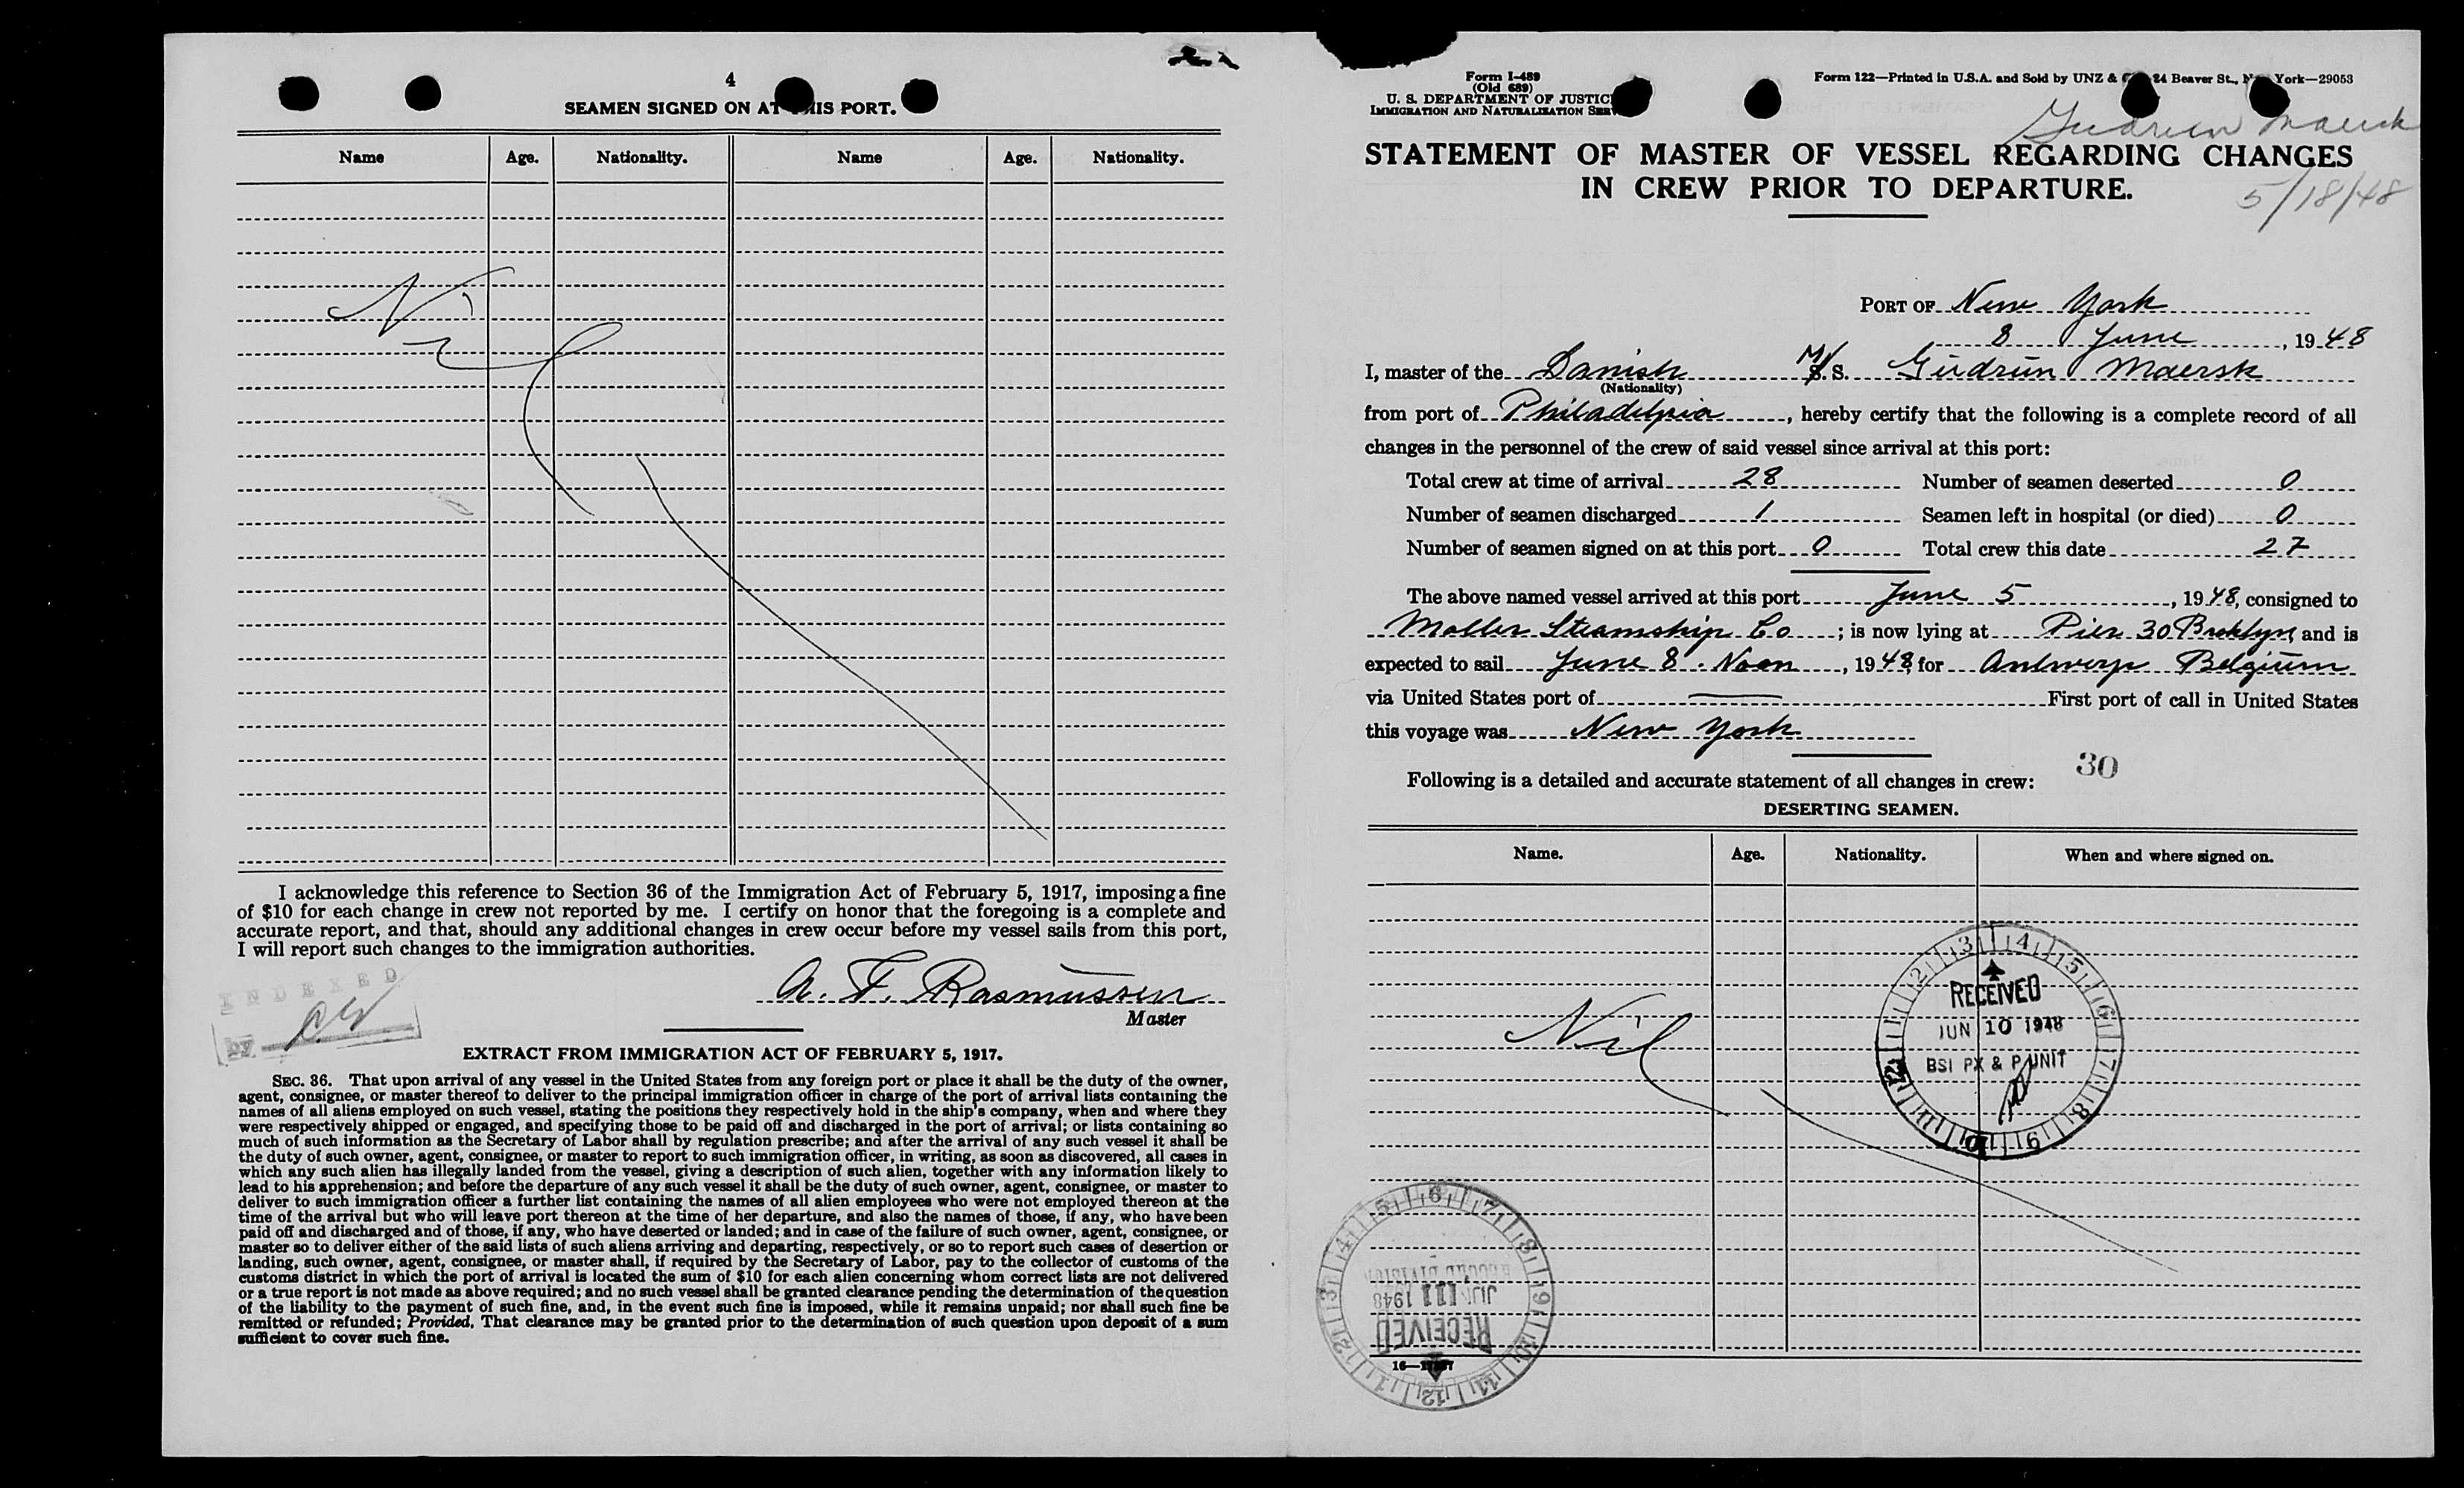 4
SEAMEN SIGNED ON AT THIS PORT.
Name Age. Nationality. Name Age. Nationality.
Nil
I acknowledge this reference to Section 36 of the Immigration Act of February 5, 1917, imposing a fine
of $10 for each change in crew not reported by me. I certify on honor that the foregoing is a complete and
accurate report, and that, should any additional changes in crew occur before my vessel sails from this port,
I will report such changes to the immigration authorities.
A. F. Rasmussen
Master
INDEXED
by
EXTRACT FROM IMMIGRATION ACT OF FEBRUARY 5, 1917.
SEC. 36. That upon arrival of any vessel in the United States from any foreign port or place it shall be the duty of the owner,
agent, consignee, or master thereof to deliver to the principal immigration officer in charge of the port of arrival lists containing the
names of all aliens employed on such vessel, stating the positions they respectively hold in the ship's company, when and where they
were respectively shipped or engaged, and specifying those to be paid off and discharged in the port of arrival; or lists containing so
much of such information as the Secretary of Labor shall by regulation prescribe; and after the arrival of any such vessel it shall be
the duty of such owner, agent, consignee, or master to report to such immigration officer, in writing, as soon as discovered, all cases in
which any such alien has illegally landed from the vessel, giving a description of such alien, together with any information likely to
lead to his apprehension; and before the departure of any such vessel it shall be the duty of such owner, agent, consignee, or master to
deliver to such immigration officer a further list containing the names of all alien employees who were not employed thereon at the
time of the arrival but who will leave port thereon at the time of her departure, and also the names of those, if any, who have been
paid off and discharged and of those, if any, who have deserted or landed; and in case of the failure of such owner, agent, consignee, or
master so to deliver either of the said lists of such aliens arriving and departing, respectively, or so to report such cases of desertion or
landing, such owner, agent, consignee, or master shall, if required by the Secretary of Labor, pay to the collector of customs of the
customs district in which the port of arrival is located the sum of $10 for each alien concerning whom correct lists are not delivered
or a true report is not made as above required; and no such vessel shall be granted clearance pending the determination of the question
of the liability to the payment of such fine, and, in the event such fine is imposed, while it remains unpaid; nor shall such fine be
remitted or refunded; Provided, That clearance may be granted prior to the determination of such question upon deposit of a sum
sufficient to cover such fine.
Form I-489
(Old 689)
U. S. DEPARTMENT OF JUSTICE
IMMIGRATION AND NATURALIZATION SERV
Form 122—Printed in U.S.A. and Sold by UNZ & 24 Beaver St., New York—29053
Gudrun Maersk
STATEMENT OF MASTER OF VESSEL REGARDING CHANGES
IN CREW PRIOR TO DEPARTURE.
5/18/48
PORT OF New York
8 June, 1948
I, master of the Danish M/S. S. Gudrun Maersk
(Nationality)
from port of Philadelphia, hereby certify that the following is a complete record of all
changes in the personnel of the crew of said vessel since arrival at this port:
Total crew at time of arrival 28 Number of seamen deserted 0
Number of seamen discharged 1 Seamen left in hospital (or died) 0
Number of seamen signed on at this port 0 Total crew this date 27
The above named vessel arrived at this port June 5, 1948, consigned to
Moller Steamship Co; is now lying at Pier 30 Brooklyn, and is
expected to sail June 8. Noon, 1948, for Antwerp Belgium
via United States port of —— First port of call in United States
this voyage was New York
30
Following is a detailed and accurate statement of all changes in crew:
DESERTING SEAMEN.
Name. Age. Nationality. When and where signed on.
Nil
1 2 3 4 5 6 7 8 9 10 11 12
RECEIVED
JUN 10 1948
BSI PX & P UNIT
1 2 3 4 5 6 7 8 9 10 11 12
RECEIVED
JUN 11 1948
RECORD DIVISION